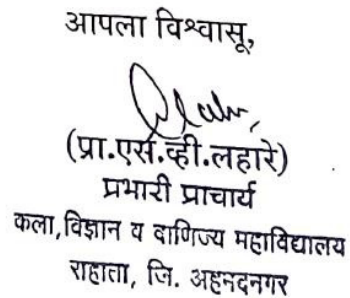 आपला विश्वासू,
(प्रा.एस.व्ही.लहारे)
प्रभारी प्राचार्य
कला,विज्ञान व वाणिज्य महाविद्यालय
राहाता, जि. अहमदनगर